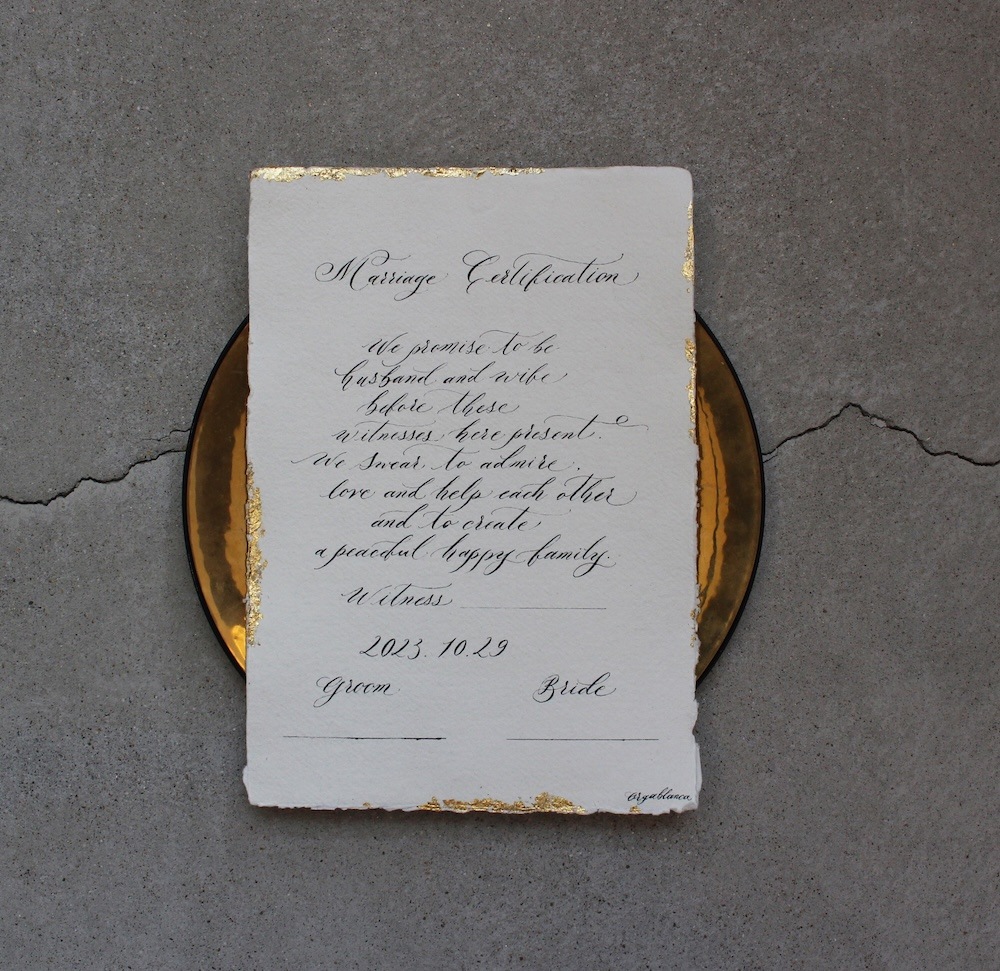 Marriage Certification
We promise to be
husband and wife
before these
witnesses here present.
We swear, to admire,
love and help each other
and to create
a peaceful happy family.
Witness
2023.10.29
Groom Bride
Orgablanca